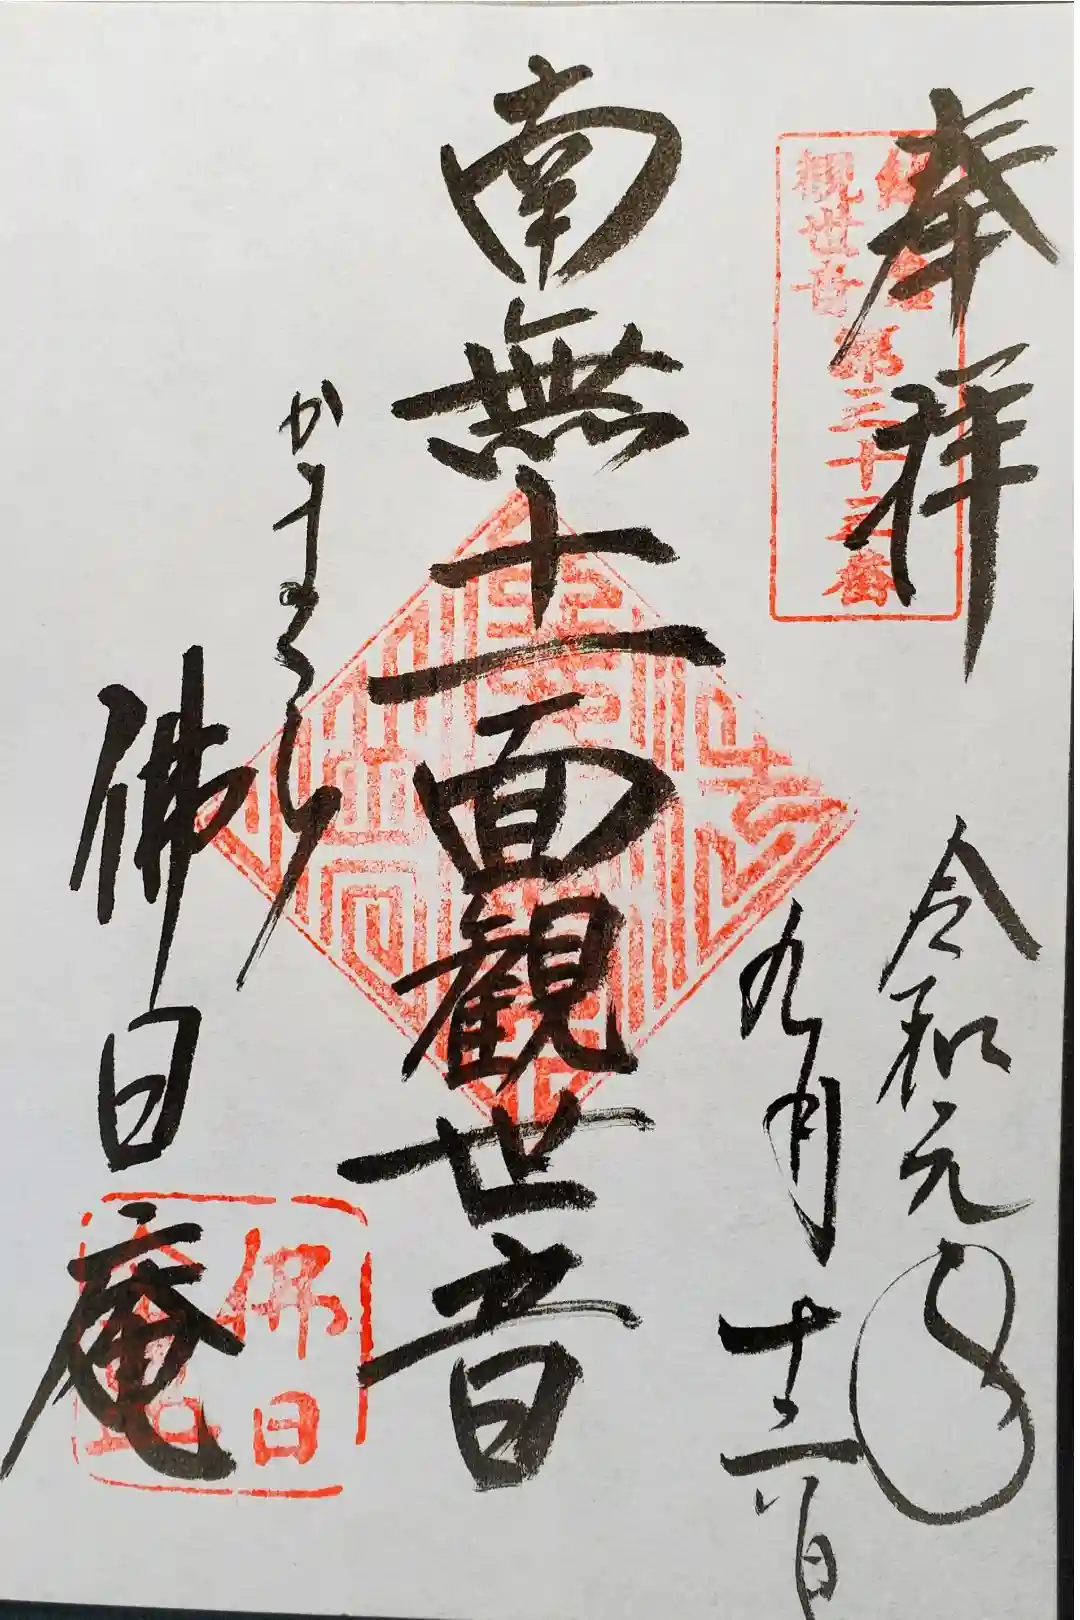 奉拝
観世音
第三十三番
令和元年
九月十二日
南無十一面観世音
かまくら
佛日庵
佛日